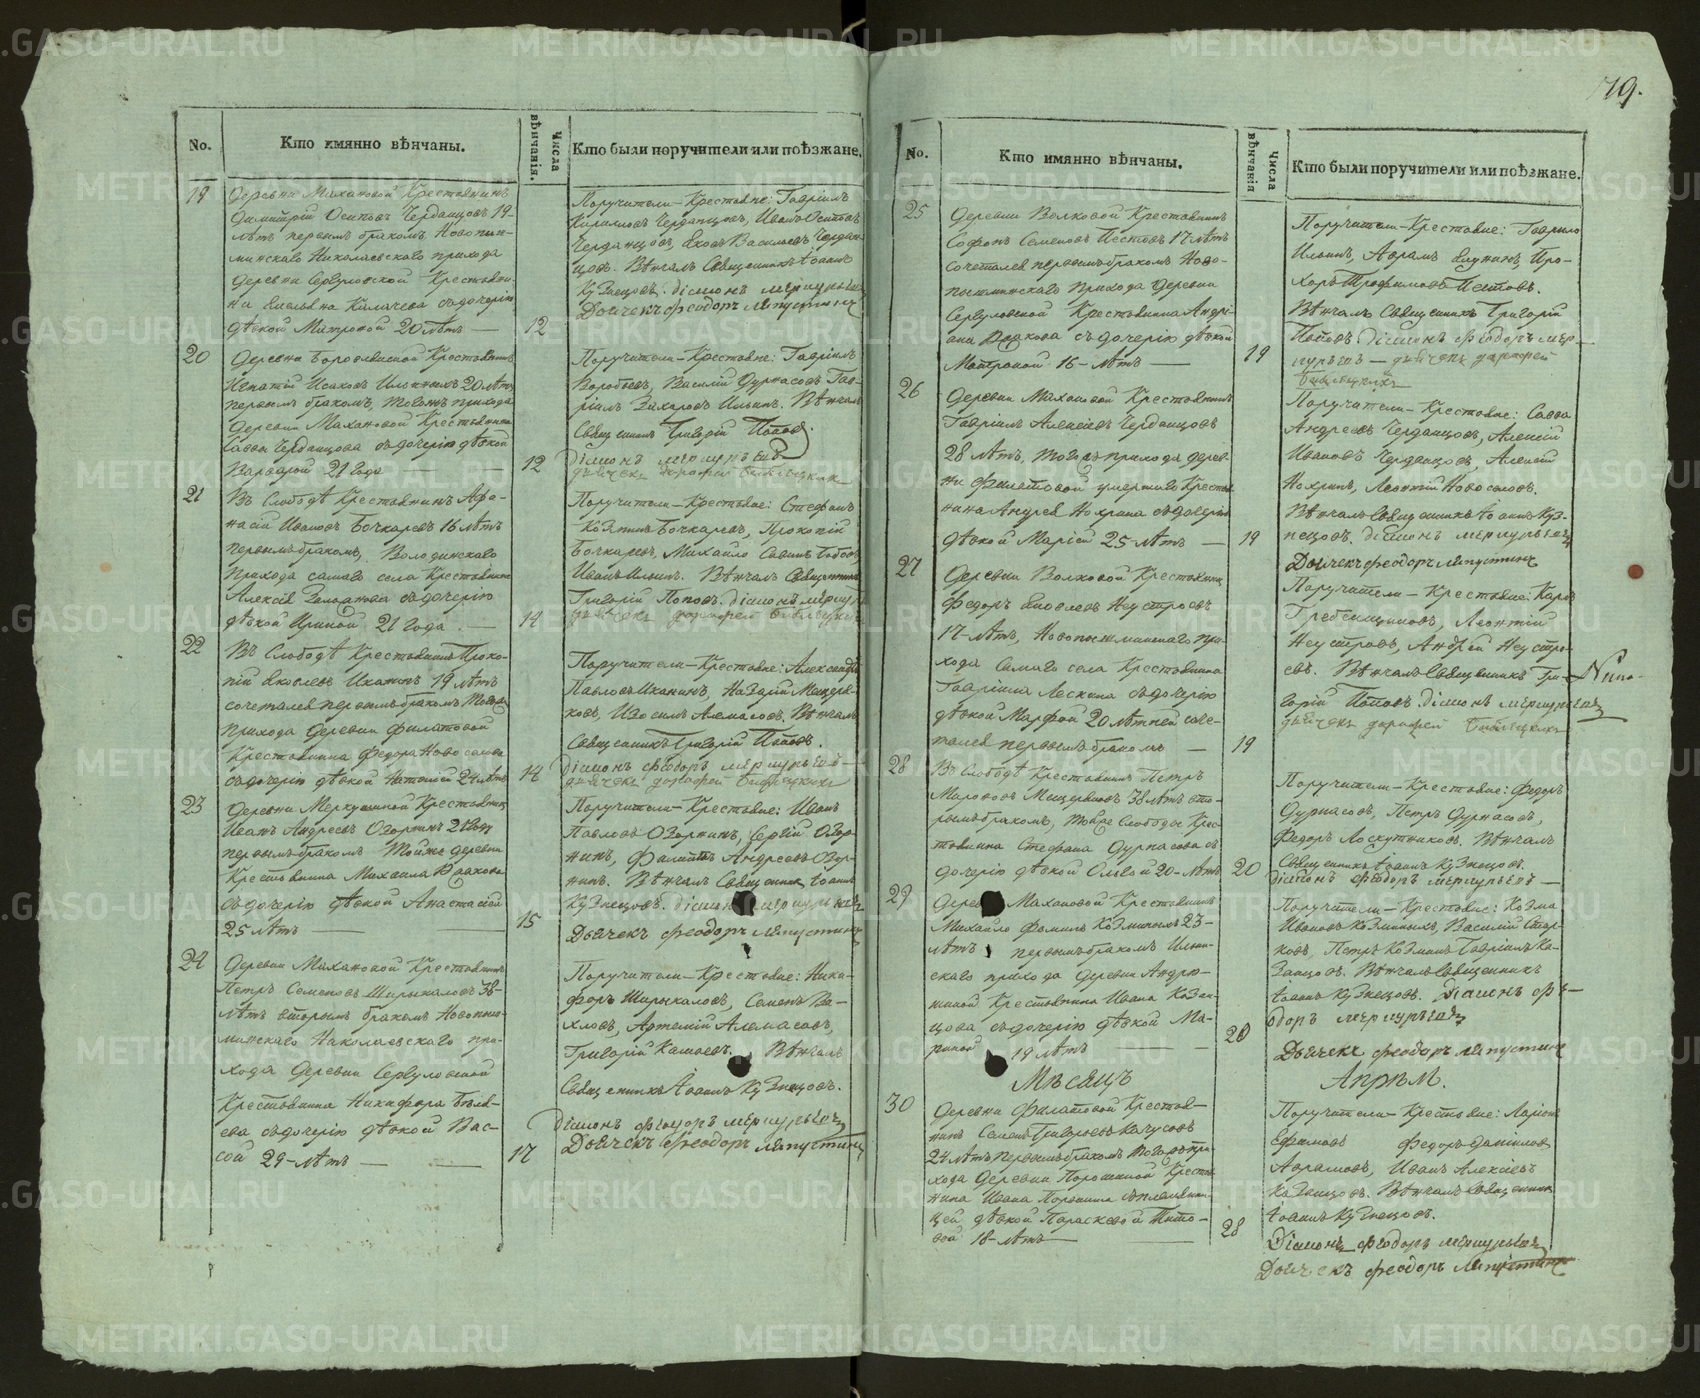 79.
No.
Кто имянно вѣнчаны.
Числа вѣнчанія.
Кто были поручители или поѣзжане.
19
Деревни Махановой Крестьянинъ
Димитрій Осиповъ Черданцовъ 19-
лѣтъ первымъ бракомъ Новопыш-
минскаго Николаевскаго прихода
деревни Сергуловской Крестьяни-
на Калачева съ дочерію
дѣвкой Матроной 20 лѣтъ —
12
Поручители – Крестьяне: Гавріилъ
Кириловъ Черданцовъ, Иванъ Осиповъ
Черданцовъ, Яковъ Васильевъ Чердан-
цовъ. Вѣнчалъ Священникъ Іоаннъ
Кузнецовъ. діаконъ меркурьевъ
Дьячекъ феодоръ ляпустинъ
20
Деревни Крестьянинъ
Игнатій Исаковъ Ильиныхъ 20 лѣтъ
первымъ бракомъ, тогожъ прихода
деревни Махановой Крестьянина
Саввы Черданцова съ дочерію дѣвкой
Варварой 21 года
12
Поручители – Крестьяне: Гавріилъ
Воробьевъ, Василій Дурнасовъ Гав-
ріилъ Захаровъ Ильинъ. Вѣнчалъ
Священникъ Григорій Поповъ.
діаконъ меркурьевъ
21
Въ Слободѣ Крестьянинъ Афо-
насій Ивановъ Бочкаревъ 16 лѣтъ
первымъ бракомъ, Володинскаго
прихода самаго села Крестьянина
Алексія съ дочерію
дѣвкой Ириной 21 года —
14
Поручители – Крестьяне: Стефанъ
Козминъ Бочкаревъ, Прокопій
Бочкаревъ, Михайло Савинъ
Иванъ Ильинъ. Вѣнчалъ Священникъ
Григорій Поповъ. діаконъ меркурьевъ
22
Въ Слободѣ Крестьянинъ Проко-
пій Яковлевъ Иканинъ 19 лѣтъ
сочетался первымъ бракомъ тогожъ
прихода деревни Филатовой
Крестьянина Федора Новоселова
съ дочерію дѣвкой Наталіей 24 лѣтъ
14
Поручители – Крестьяне: Александръ
Павловъ Иканинъ, Назарій Мещеря-
ковъ, Изосимъ Алемасовъ, Вѣнчалъ
Священникъ Григорій Поповъ.
діаконъ феодоръ меркурьевъ –
23
Деревни Меркушиной Крестьянинъ
Иванъ Андреевъ Озорнинъ 21 году
первымъ бракомъ Тойже деревни
Крестьянина Михаила
съ дочерію дѣвкой Анастасіей
25 лѣтъ —
15
Поручители – Крестьяне: Иванъ
Павловъ Озорнинъ, Сергій Озор-
нинъ, Филиппъ Андреевъ Озор-
нинъ. Вѣнчалъ Священникъ Іоаннъ
Кузнецовъ. діаконъ меркурьевъ
Дьячекъ феодоръ ляпустинъ
24
Деревни Махановой Крестьянинъ
Петръ Семеновъ Ширыкаловъ 38-
лѣтъ вторымъ бракомъ Новопыш-
минскаго Николаевскаго при-
хода Деревни Сергуловской
Крестьянина Никифора Бѣля-
ева съ дочерію дѣвкой Вас-
сой 29-лѣтъ —
17
Поручители – Крестьяне: Ники-
форъ Ширыкаловъ, Семенъ Ва-
хловъ, Артемій Алемасовъ,
Григорій Вѣнчалъ
Священникъ Іоаннъ Кузнецовъ.
діаконъ феодоръ меркурьевъ
Дьячекъ феодоръ ляпустинъ
No.
Кто имянно вѣнчаны.
Числа вѣнчанія
Кто были поручители или поѣзжане.
25
Деревни Волковой Крестьянинъ
Софонъ Семеновъ Пестовъ 17 лѣтъ
сочетался первымъ бракомъ Ново-
пышминскаго прихода деревни
Сергуловской Крестьянина Андрі-
ана съ дочерію дѣвкой
Матроной 16-лѣтъ —
19
Поручители – Крестьяне: Гаврило
Ильинъ, Аврамъ Про-
хоръ Трофимовъ Пестовъ.
Вѣнчалъ Священникъ Григорій
Поповъ діаконъ феодоръ мер-
курьевъ –
26
Деревни Махановой Крестьянинъ
Гавріилъ Алексіевъ Черданцовъ
28 лѣтъ, тогожъ прихода дерев-
ни Филатовой умершаго Крестья-
нина Андрея Нохрина съ дочерію
дѣвкой Маріей 25 лѣтъ —
19
Поручители – Крестьяне: Савва
Андреевъ Черданцовъ, Алексій
Ивановъ Черданцовъ, Алексій
Нохринъ, Леонтій Новоселовъ.
Вѣнчалъ Священникъ Іоаннъ Куз-
нецовъ. діаконъ меркурьевъ
Дьячекъ феодоръ ляпустинъ
27
Деревни Волковой Крестьянинъ
Федоръ Яковлевъ Неустроевъ
17-лѣтъ, Новопышминскаго при-
хода Самаго села Крестьянина
Гавріила Лескина съ дочерію
дѣвкой Марфой 20 лѣтней соче-
тался первымъ бракомъ —
19
Поручители – Крестьяне: Карпъ
Гребенщиковъ, Леонтій
Неустроевъ, Андрей Неустро-
евъ. Вѣнчалъ Священникъ Гри-
горій Поповъ. діаконъ меркурьевъ
28
Въ Слободѣ Крестьянинъ Петръ
Мироновъ Мещеряковъ 38 лѣтъ вто-
рымъ бракомъ, тойже Слободы Крес-
тьянина Стефана Дурнасова съ
дочерію дѣвкой Ольгой 20-лѣтъ
20
Поручители – Крестьяне: Федоръ
Дурнасовъ, Петръ Дурнасовъ,
Федоръ Лоскутниковъ. Вѣнчалъ
Священникъ Іоаннъ Кузнецовъ.
діаконъ феодоръ меркурьевъ —
29
Деревни Махановой Крестьянинъ
Михайло Фоминъ Козминыхъ 23-
лѣтъ первымъ бракомъ Ильин-
скаго прихода деревни Андрю-
шиной Крестьянина Ивана Казан-
цова съ дочерію дѣвкой Ма-
риной 19 лѣтъ —
20
Поручители – Крестьяне: Козма
Ивановъ Козминыхъ, Василій Стар-
ковъ, Петръ Козминъ Гавріилъ Ка-
занцовъ. Вѣнчалъ Священникъ
Іоаннъ Кузнецовъ. діаконъ фе-
одоръ меркурьевъ
Дьячекъ феодоръ ляпустинъ
Мѣсяцъ Апрѣль.
30
Деревни Филатовой Крестья-
нинъ Семенъ Григорьевъ
24 лѣтъ первымъ бракомъ тогожъ при-
хода деревни Порошиной Крестья-
нина Ивана Порошина съ племянни-
цей дѣвкой Параскевой Тито-
вой 18-лѣтъ —
28
Поручители – Крестьяне: Ларіонъ
Ефимовъ Федоръ Даниловъ
Аврамовъ, Иванъ Алексіевъ
Казанцовъ. Вѣнчалъ Священникъ
Іоаннъ Кузнецовъ.
Діаконъ феодоръ меркурьевъ
Дьячекъ феодоръ ляпустинъ
METRIKI.GASO-URAL.RU